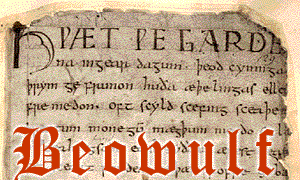 HǷÆT ǷE GARDE
na ingear dagum. þeod cyninga
þrym ge frunon huða æþelingas elle
fre medon. oft scyld scefing sceaþe
monegū mægþum
Beowulf